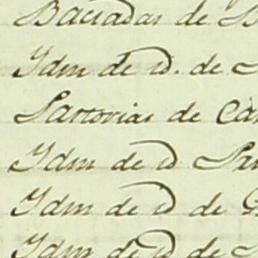 Baciadas de
Idm de id. de
Sartorias de Ca
Idm de id
Idm de id de
Idm de id de